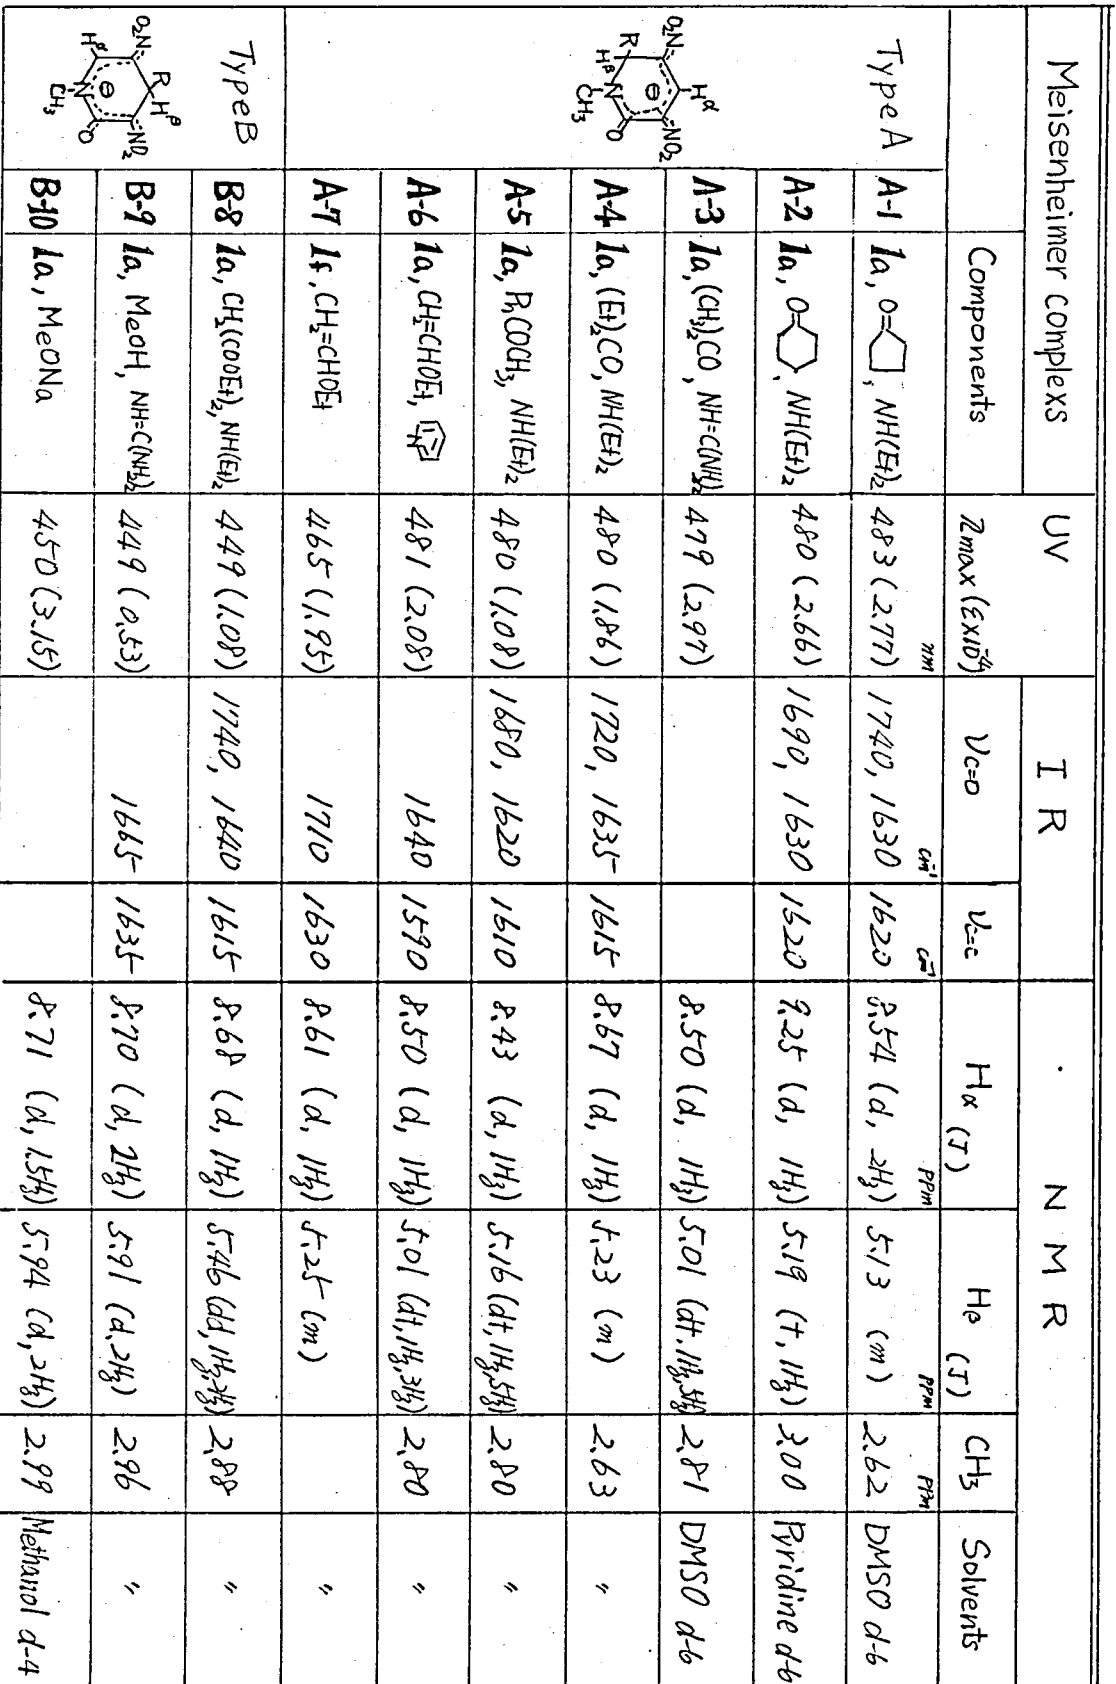 Meisenheimer complexs UV IR NMR
Components λmax (ε×10⁻⁴) nm νC=O cm⁻¹ νC=C cm⁻¹ Hα (J) ppm Hβ (J) ppm CH3 ppm Solvents
Type A
O2N NO2 Hα R Hβ N CH3 O ⊖
A-1 1a, O=, NH(Et)2 483 (2.77) 1740, 1630 1620 8.54 (d, 2Hz) 5.13 (m) 2.62 DMSO d-6
A-2 1a, O=, NH(Et)2 480 (2.66) 1690, 1630 1620 9.25 (d, 1Hz) 5.19 (t, 1Hz) 3.00 Pyridine d-6
A-3 1a, (CH3)2CO, NH=C(NH2)2 479 (2.97) 8.50 (d, 1Hz) 5.01 (dt, 1Hz, 5Hz) 2.81 DMSO d-6
A-4 1a, (Et)2CO, NH(Et)2 480 (1.86) 1720, 1635 1615 8.67 (d, 1Hz) 5.23 (m) 2.63 〃
A-5 1a, PhCOCH3, NH(Et)2 480 (1.08) 1680, 1620 1610 8.43 (d, 1Hz) 5.16 (dt, 1Hz, 5Hz) 2.80 〃
A-6 1a, CH2=CHOEt, 481 (2.08) 1640 1590 8.50 (d, 1Hz) 5.01 (dt, 1Hz, 3Hz) 2.80 〃
A-7 1f, CH2=CHOEt 465 (1.95) 1710 1630 8.61 (d, 1Hz) 5.25 (m) 〃
Type B
O2N R Hβ NO2 Hα N CH3 O ⊖
B-8 1a, CH2(COOEt)2, NH(Et)2 449 (1.08) 1740, 1640 1615 8.68 (d, 1Hz) 5.46 (dd, 1Hz, 2Hz) 2.88 〃
B-9 1a, MeOH, NH=C(NH2)2 449 (0.53) 1665 1635 8.70 (d, 2Hz) 5.91 (d, 2Hz) 2.96 〃
B-10 1a, MeONa 450 (3.15) 8.71 (d, 1.5Hz) 5.94 (d, 2Hz) 2.99 Methanol d-4